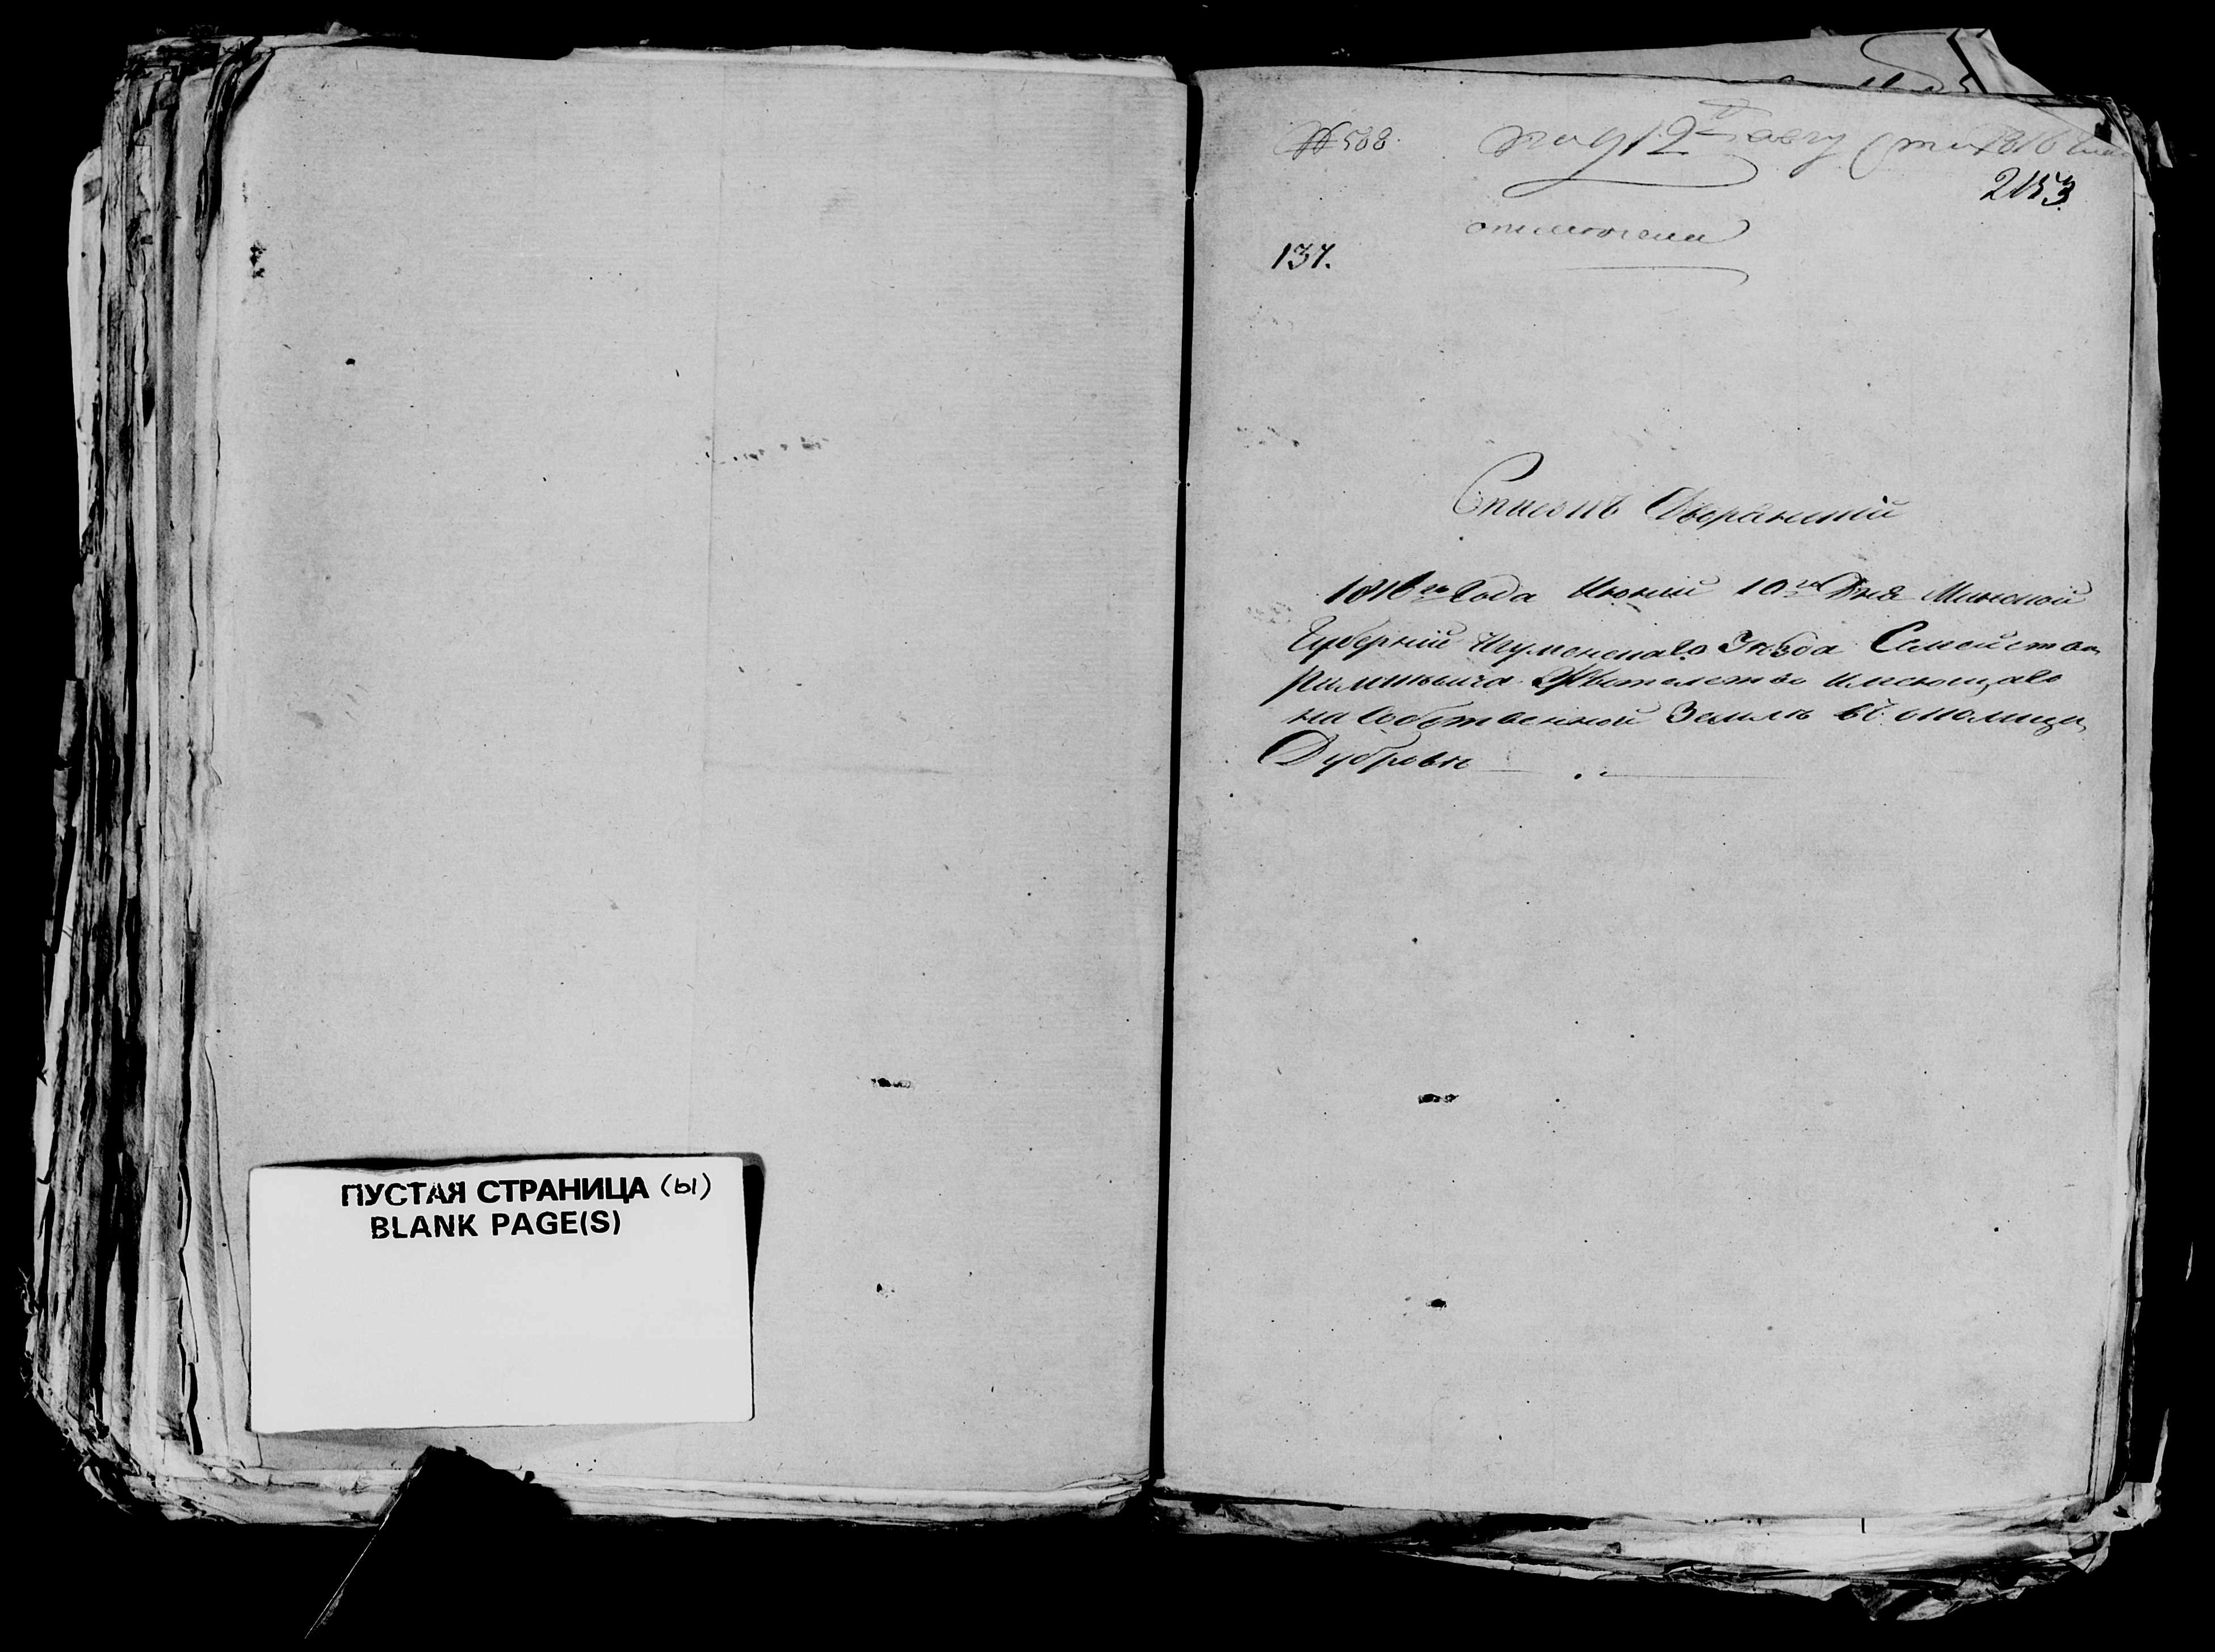 ПУСТАЯ СТРАНИЦА (ы)
BLANK PAGE(S)
№ 588.
2153
137.
Списокъ Дворянскій
1816го Года Июнии 10го Дня Минской
Губерніи Игуменскаго Уѣзда Семейства
жительство имеющаго
на Собственной Землѣ въ околицы
Дубровы